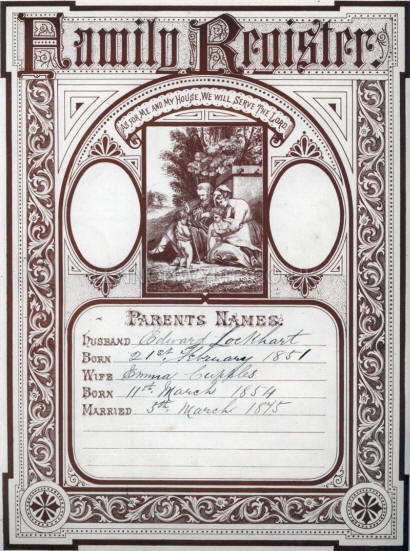 Family Register.
AS FOR ME AND MY HOUSE, WE WILL SERVE THE LORD.
PARENTS NAMES.
HUSBAND Edward Lockhart
BORN 21st February 1851
WIFE Emma Cupples
BORN 11th March 1854
MARRIED 5th March 1875